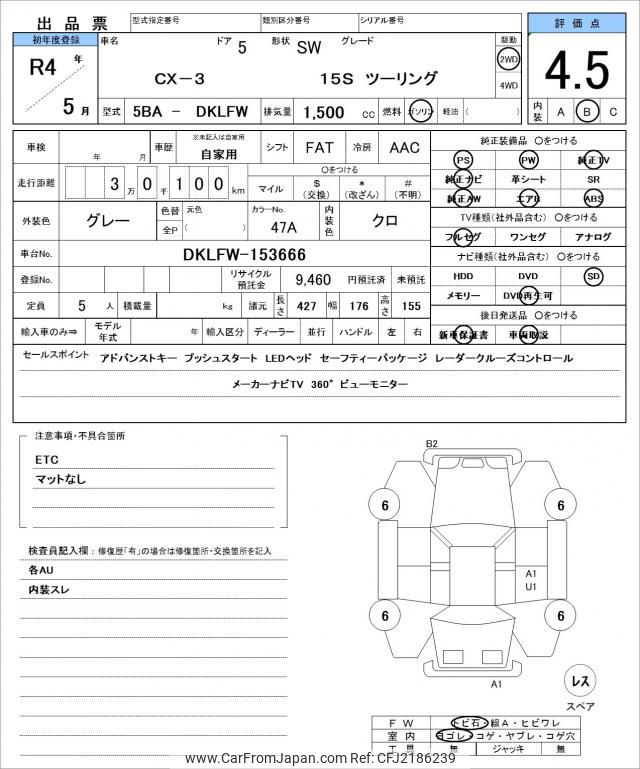 出品票 型式指定番号 類別区分番号 シリアル番号
評価点
初年度登録 車名 ドア 5 形状 SW グレード 駆動
R4 年 CX-3 15S ツーリング 2WD 4.5
4WD
5 月 型式 5BA - DKLFW 排気量 1,500 cc 燃料 ガソリン 軽油 ( ) 内装 A B C
車検 年 月 車歴 ※未記入は自家用 自家用 シフト FAT 冷房 AAC
純正装備品 〇をつける
PS PW 純正TV
走行距離 3 万 0 千 1 0 0 km 〇をつける
マイル $ (交換) * (改ざん) # (不明)
純正ナビ 革シート SR
純正AW エアB ABS
外装色 グレー 色替 元色 カラーNo. 内装色 クロ
全P ( ) 47A
TV種類(社外品含む) 〇をつける
フルセグ ワンセグ アナログ
車台No. DKLFW-153666
ナビ種類(社外品含む) 〇をつける
登録No. リサイクル預託金 9,460 円預託済 未預託
HDD DVD SD
定員 5 人 積載量 kg 諸元 長さ 427 幅 176 高さ 155
メモリー DVD再生可
後日発送品 〇をつける
輸入車のみ⇒ モデル年式 年 輸入区分 ディーラー 並行 ハンドル 左 右
新車保証書 車両取説
セールスポイント アドバンストキー プッシュスタート LEDヘッド セーフティーパッケージ レーダークルーズコントロール
メーカーナビTV 360°ビューモニター
注意事項・不具合箇所
ETC
マットなし
検査員記入欄:修復歴「有」の場合は修復箇所・交換箇所を記入
各AU
内装スレ
B2
6 6
A1
U1
6 6
A1
レス
スペア
FW トビ石・線A・ヒビワレ
室内 ヨゴレ・コゲ・ヤブレ・コゲ穴
工具 無 ジャッキ 無
www.CarFromJapan.com Ref:CFJ2186239